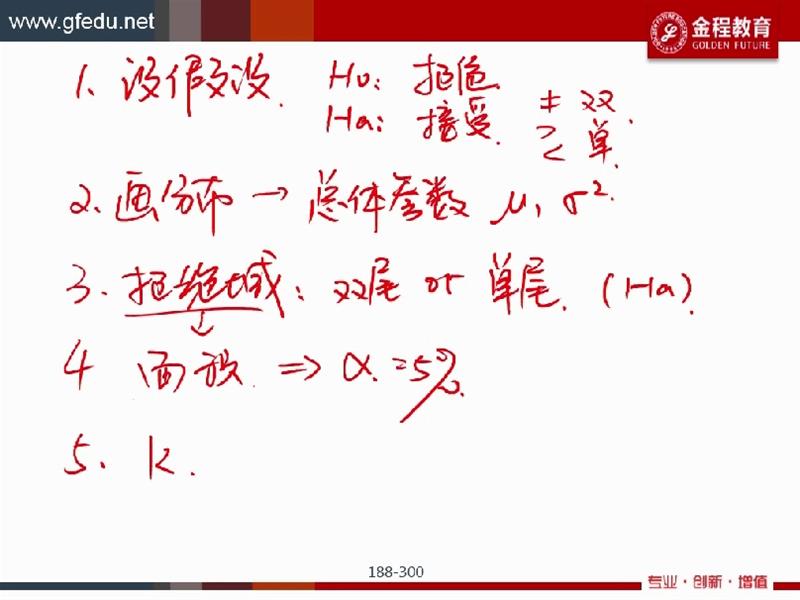 www.gfedu.net
金程教育
GOLDEN FUTURE
1. 设假设. H0: 拒绝
Ha: 接受. ≠ 双.
> < 单.
2. 画分布 → 总体参数 μ, σ².
3. 拒绝域: 双尾 or 单尾. (Ha)
4 面积. ⇒ α = 5%.
5. K.
188-300
专业·创新·增值